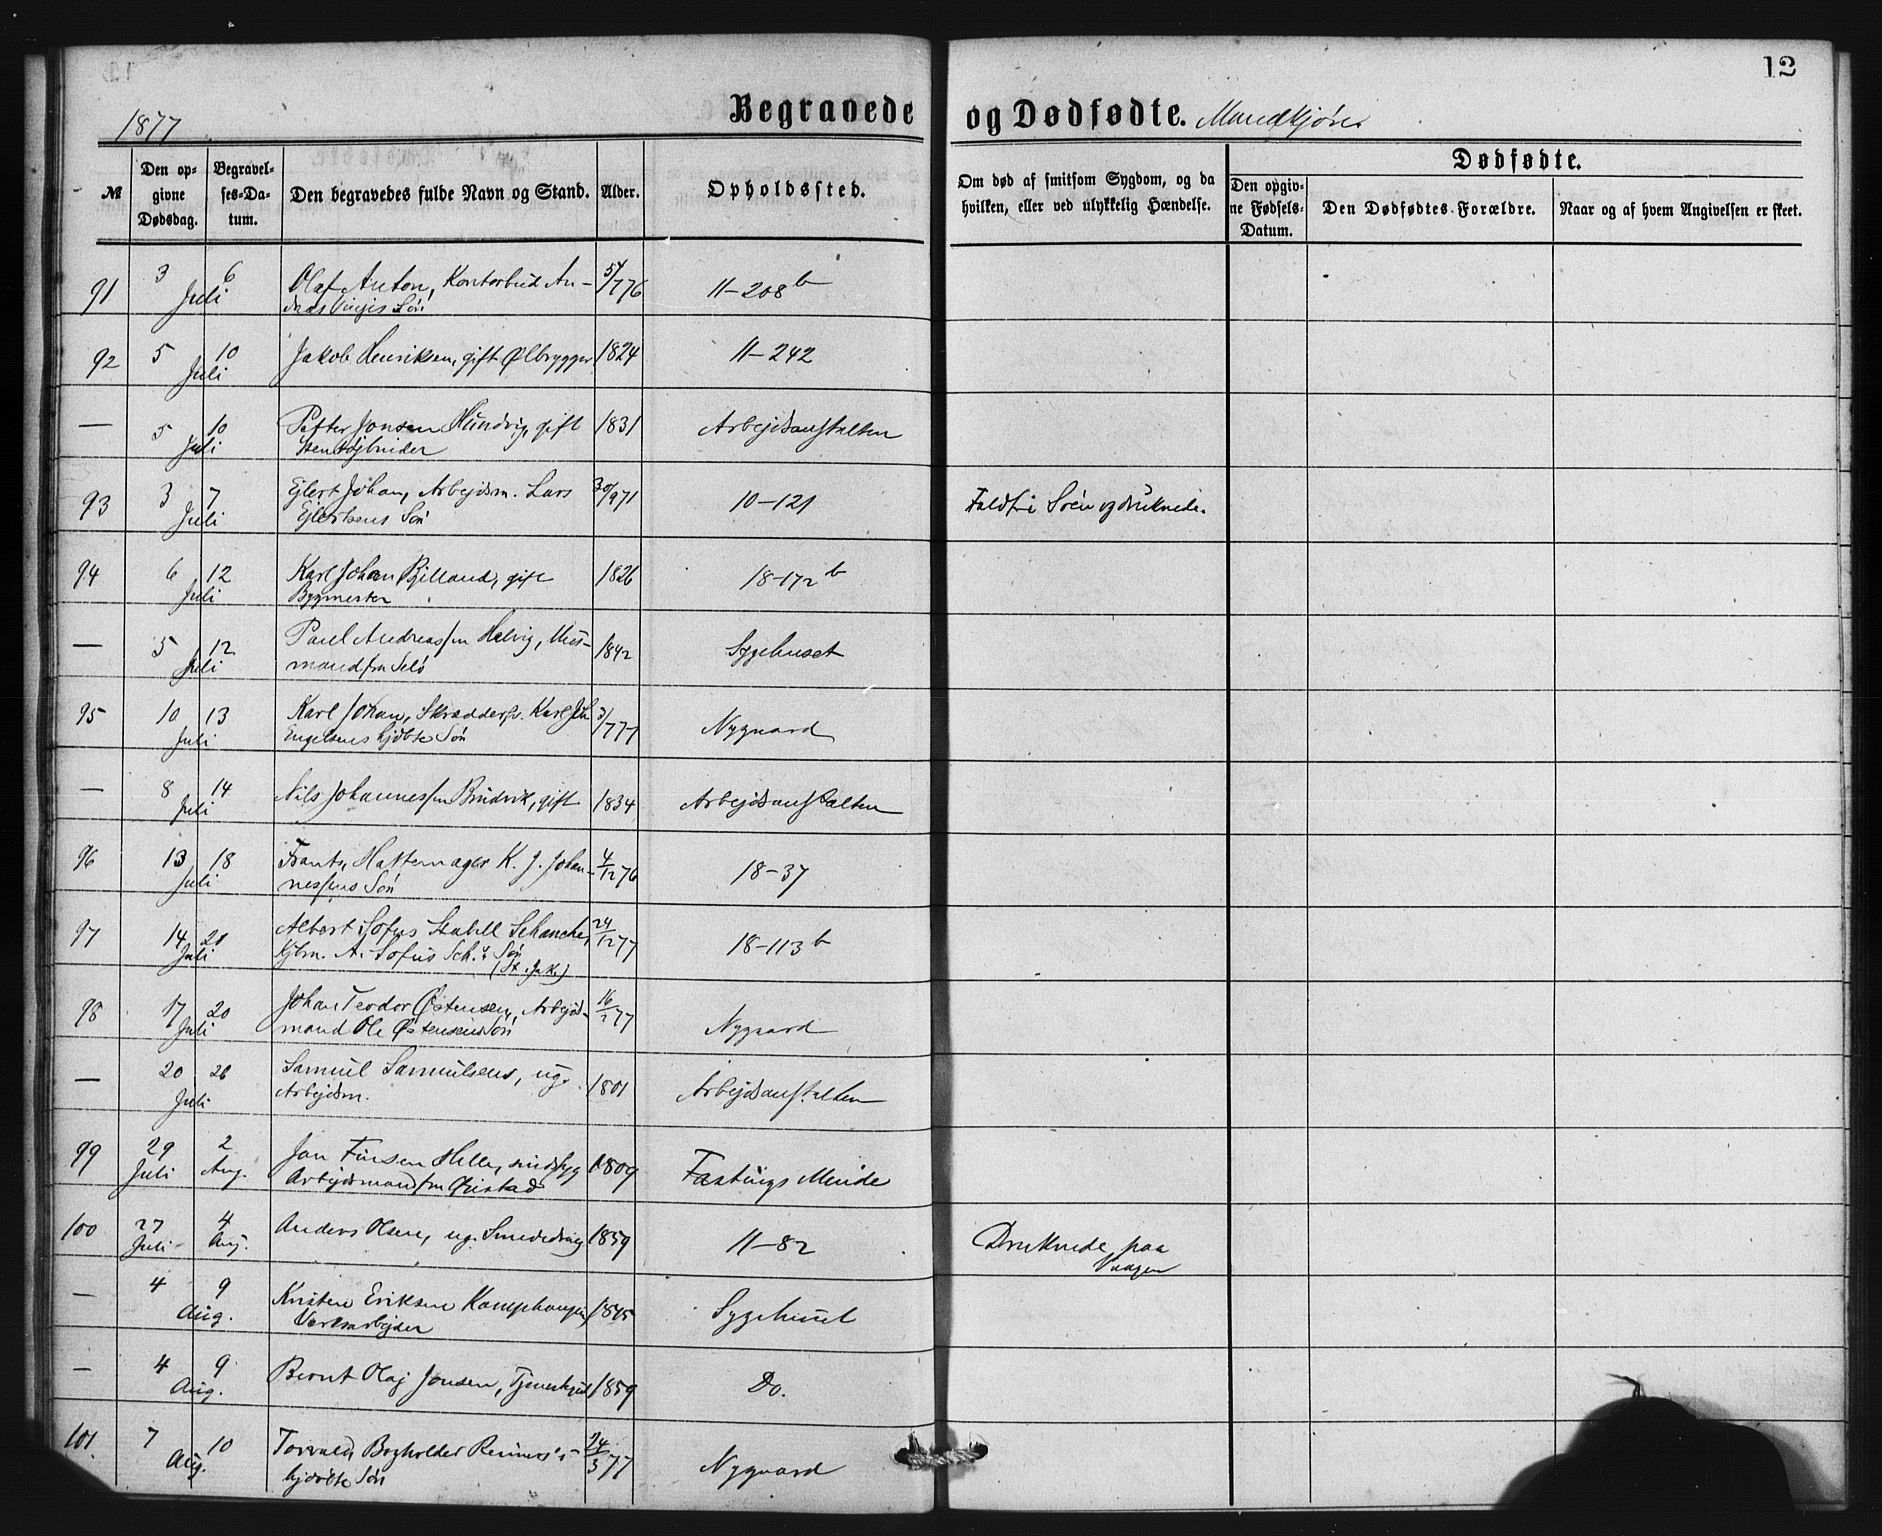 12
1877
Begravede og Dødfødte. Mandkjøn.
№
Den opgivne Dødsdag.
Begravelses-Datum.
Den begravedes fulde Navn og Stand.
Alder.
Opholdssted.
Om død af smitsom Sygdom, og da hvilken, eller ved ulykkelig Hændelse.
Dødfødte.
Den opgivne Fødsels-Datum.
Den Dødfødtes Forældre.
Naar og af hvem Angivelsen er skeet.
91 3 6 Juli Olaf Anton, Kontorbud An- 5/776 11-208 b
Søn
92 5 10 Juli Jakob Henriksen, gift Ølbrygger 1824 11-242
— 5 10 Juli Petter Jonsen Hundvig, gift 1831 Arbejdsanstalten
93 3 7 Juli Ejlert Johan, Arbejdsm. Lars 30/971 10-121 Faldt i Søen og druknede.
Ejlertsens Søn
94 6 12 Juli Karl Johan Bjelland, gift 1826 18-172 b
Bygmester
— 5 12 Juli Paul Andreassen Helvig, Hus- 1842 Sygehuset
mand fra Selø
95 10 13 Juli Karl Johan, Skrædders. Karl Joh. 3/777 Nygaard
Engelsens hjdbte Søn
— 8 14 Juli Nils Johannessen Brudvik, gift 1834 Arbejdsanstalten
96 13 18 Juli Frants, Hattemager K. J. Johan- 4/1276 18-37
nessens Søn
97 14 20 Juli Albert Sofus Stabell Schancke, 24/1277 18-113 b
Kjbm. A. Sofus Sch.s Søn
(St. Jak.)
98 17 20 Juli Johan Teodor Østensen, Arbejds- 16/277 Nygaard
mand Ole Østensens Søn
— 20 26 Juli Samuel Samuelsens, ug. 1801 Arbejdsanstalten
Arbejdsm.
99 29 Juli 2 Aug. Jon Finsen Helle, sindssyg 1809 Fastings Minde
Arbejdsmand fra
100 27 Juli 4 Aug. Anders Olsen, ug. Smededreng 1859 11-82 Druknede paa
Vaagen
— 4 9 Aug. Kristen Eriksen Kamphaug 1845 Sygehuset
Værksarbejder
— 4 9 Aug. Bernt Olaj Jonsen, Tjenerkarl 1859 Do.
101. 7 10 Aug. Torvald, Bogholder 24/377 Nygaard
hjdøbte Søn